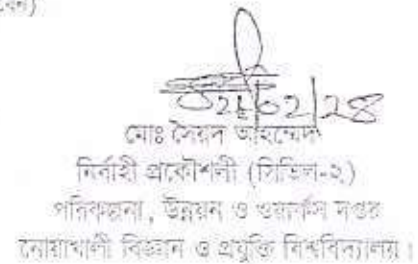 ০২/০২/২৪
মোঃ সৈয়দ আহম্মেদ
নির্বাহী প্রকৌশলী (সিভিল-২)
পরিকল্পনা, উন্নয়ন ও ওয়ার্কস দপ্তর
নোয়াখালী বিজ্ঞান ও প্রযুক্তি বিশ্ববিদ্যালয়।